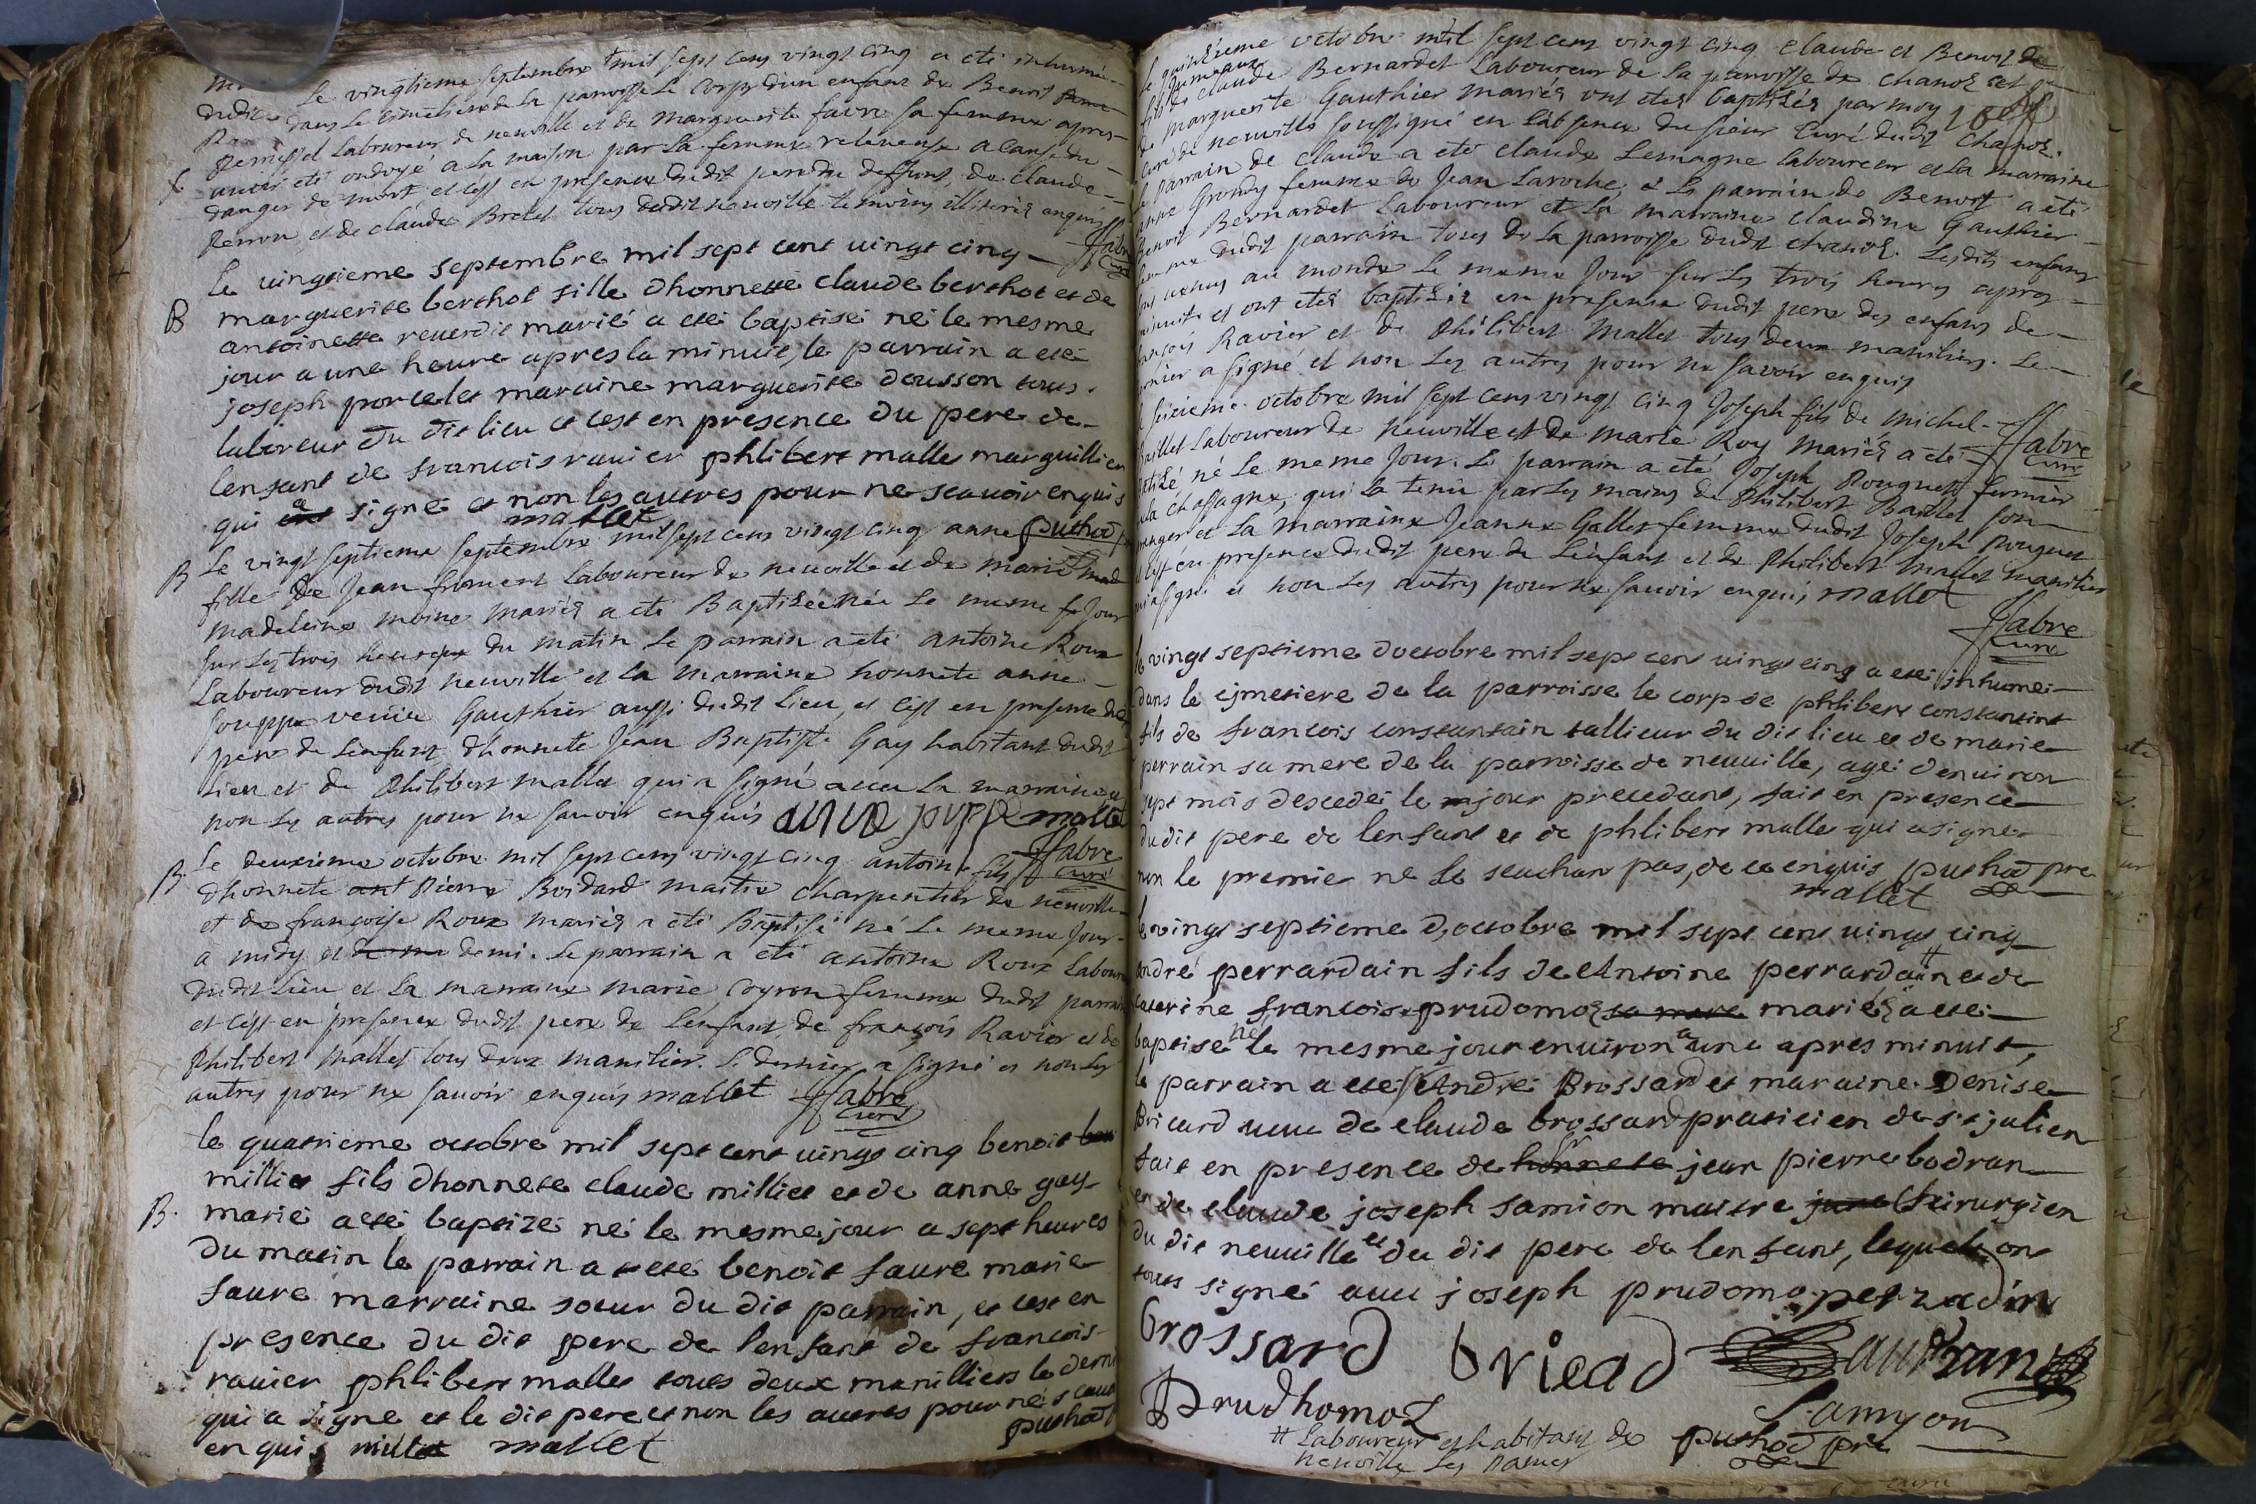 Le vingtieme septembre mil sept cens vingt cinq a eté inhumé
dans le cimetiere de la paroisse le corps d'un enfant de Benoit
laboureur de neuville et de marguerite favre sa femme apres
avoir eté ondoyé a la maison par la femme releveuse a cause du
danger de mort, et c'est en presence dudit pere du deffunt, de claude
perron, et de claude Bretel tous dudit neuville temoins illiterés enquis
ffabre
curé
B
le vingtieme septembre mil sept cent vingt cinq
marguerite berthot fille dhonneste claude berthot et de
antoinette reverdit marié a eté baptisé né le mesme
jour a une heure apres la minuit, le parrain a eté
joseph porcelet maraine marguerite dousson tous
laboreur du dit lieu et cest en presence du pere de
lenfant de francois ravier phlibert malle marguillier
qui a signé et non les autres pour ne scavoir enquis
mallet
puthod
B
Le vingt septieme septembre mil sept cens vingt cinq anne
fille de Jean froment laboureur de neuville et de marie mad
madeleine moine mariés a eté Baptisée née le meme jour
sur les trois heures du matin le parrain a eté antoine Roux
Laboureur dudit neuville et la marraine honnete anne
jouppe veuve Gauthier aussi dudit lieu, et c'est en presence du
pere de l'enfant, d'honnete Jean Baptiste Gay habitant dudit
lieu et de Philibert mallet qui a signé avec la marraine
non les autres pour ne savoir enquis anne jouppe mallet
ffabre
curé
B.
Le deuxieme octobre mil sept cens vingt cinq antoine fils
d'honnete ant Pierre Boidard maitre charpentier de neuville
et de francoise Roux mariés a eté Baptisé né le meme jour
a midy et de me demi. Le parrain a eté antoine Roux labour
dudit lieu et la marraine marie Voyron femme dudit parrain
et c'est en presence dudit pere de l'enfant, de françois Ravier et de
Philibert Mallet tous deux manilier. Le dernier a signé et non les
autres pour ne savoir enquis mallet ffabre
curé
B.
le quatrieme octobre mil sept cent vingt cinq benoit
milliet fils dhonnete claude milliet et de anne gay
marié a eté baptizé né le mesme jour a sept heures
du matin le parrain a eté benoit faure marie
faure marraine soeur du dit parrain, et cest en
presence du dit pere de lenfant de francois
ravier phlibert malle tous deux manilliers le derni
qui a signe et le dit pere et non les autres pour ne scavoi
enquis millet mallet
puthod
Le quinzieme octobre mil sept cens vingt cinq claude et Benoit
jumeaux
fils de claude Bernardet Laboureur de la paroisse de chanoz et
de marguerite Gauthier mariés ont eté baptisés par moy
curé de neuville soussigné en l'absence du sieur curé dudit chanoz.
Le parrain de claude a eté claude Lemagne laboureur et la marraine
anne Grondy femme de Jean Laroche, & le parrain de Benoit a eté
Benoit Bernardet Laboureur et la marraine claudine Gauthier
femme dudit parrain tous de la paroisse dudit chanoz. Lesdits enfans
sont venus au monde le meme jour sur les trois heures apres
minuit et ont eté baptisés en presence dudit pere des enfans de
françois Ravier et de Philibert Mallet tous deux maniliers. Le
dernier a signé et non les autres pour ne savoir enquis
ffabre
curé
Le seizieme octobre mil sept cens vingt cinq Joseph fils de michel
Baillet Laboureur de neuville et de marie Roy mariés a eté
baptisé né le meme jour. Le parrain a eté Joseph Rouguet fermier
de la chassagne, qui la tenu par les mains de Philibert Baillet son
granger et la marraine Jeanne Gallet femme dudit Joseph Rouguet
et c'est en presence dudit pere de l'enfant et de Philibert mallet manilier
qui a signé et non les autres pour ne savoir enquis mallet
ffabre
curé
le vingt septieme doctobre mil sept cent vingt cinq a eté inhumé
dans le cimetiere de la parroisse le corp de phlibert constantint
fils de francois constantain tallieur du dit lieu et de marie
perrain sa mere de la parroisse de neuville, agé denviron
sept mois descedé le jour precedent, fait en presence
du dit pere de lenfant et de phlibert malle qui a signe
non le premie ne le seachant pas, de ce enquis puthod pre
mallet
le vingt septieme doctobre mil sept cent vingt cinq
André perrardain fils de Antoine perrardain # et de
caterine francoise prudomoz sa mere mariés a eté
baptise né le mesme jour environ a une apres minuit,
le parrain a eté André Brossard et maraine Denise
Bricard veuve de claude brossard praticien de st julien
fait en presence de honnete jean pierre bodran
et de claude joseph samion maitre chirurgien
du dit neuville et du dit pere de lenfant, lequels ont
tous signé avec joseph prudomo perradin
brossard bricad Bautran
Prudhomoz Samyon
# Laboureur et habitant de
neuville les Dames
puthod pre